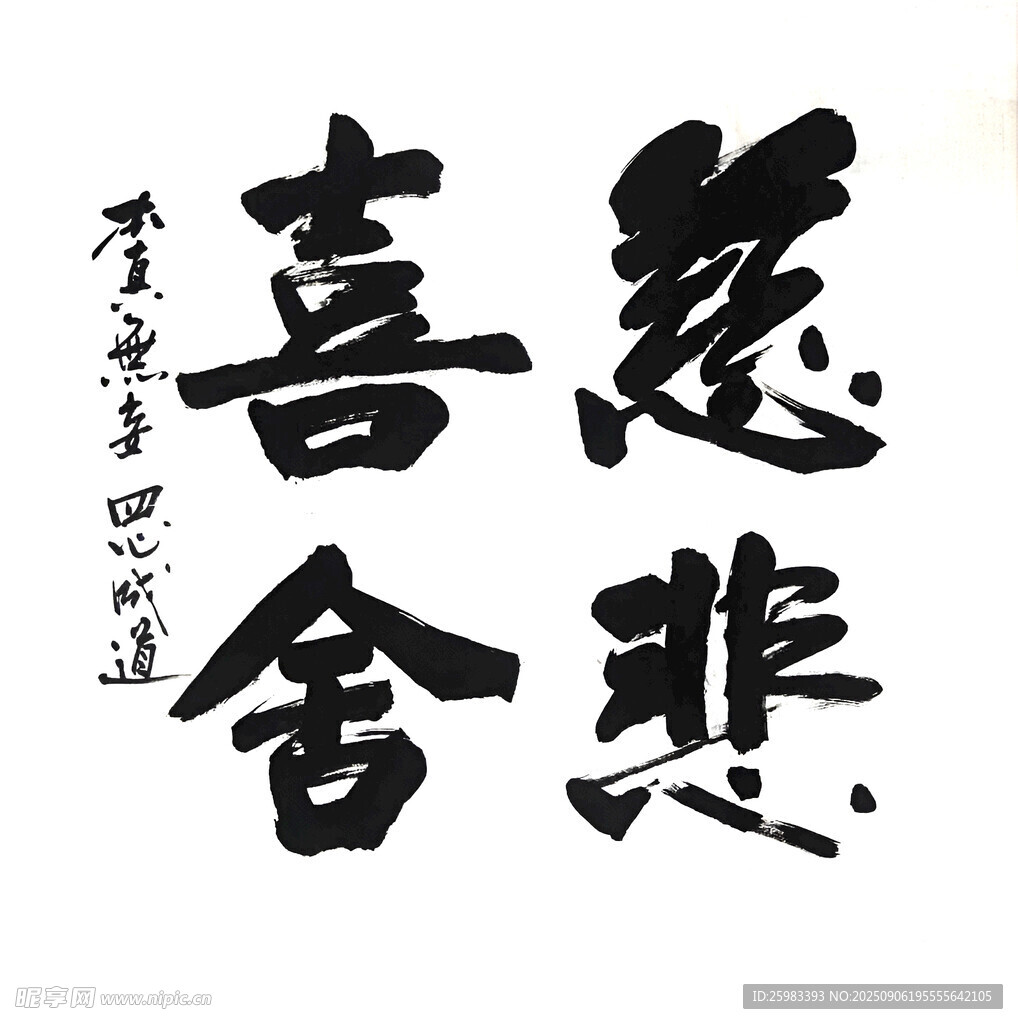 慈悲
喜舍
本真無妄 思成道
昵享网 www.nipic.cn
ID:25983393 NO:20250906195555642105